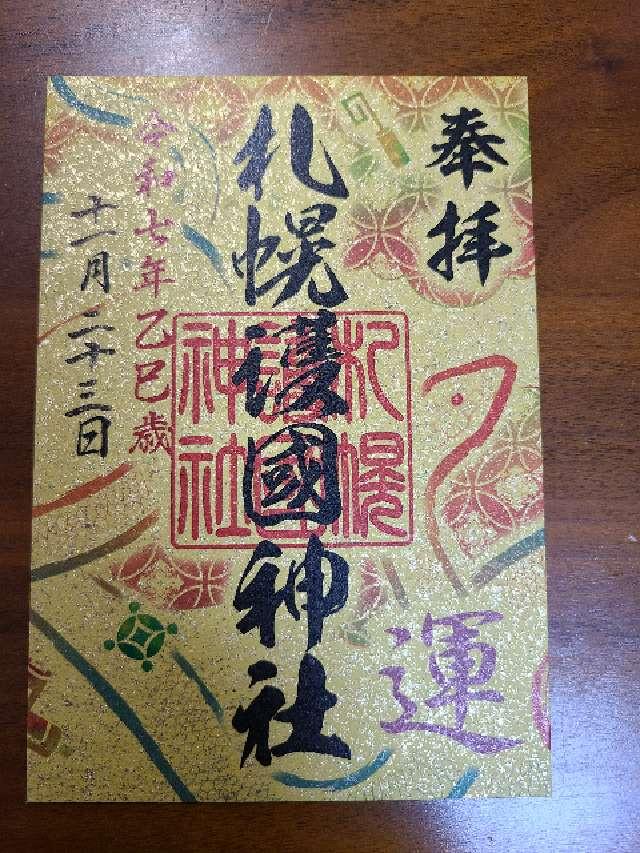 奉拝
札幌護國神社
札幌
護國
神社
運
令和七年乙巳歳
十一月二十三日